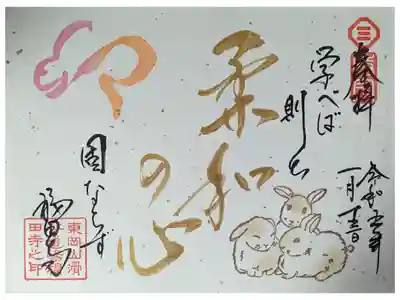 奉拝
学べば
則ち
令和五年
一月十三日
柔和
の心
卯
固ならず
福田寺
東岡山
田寺之印